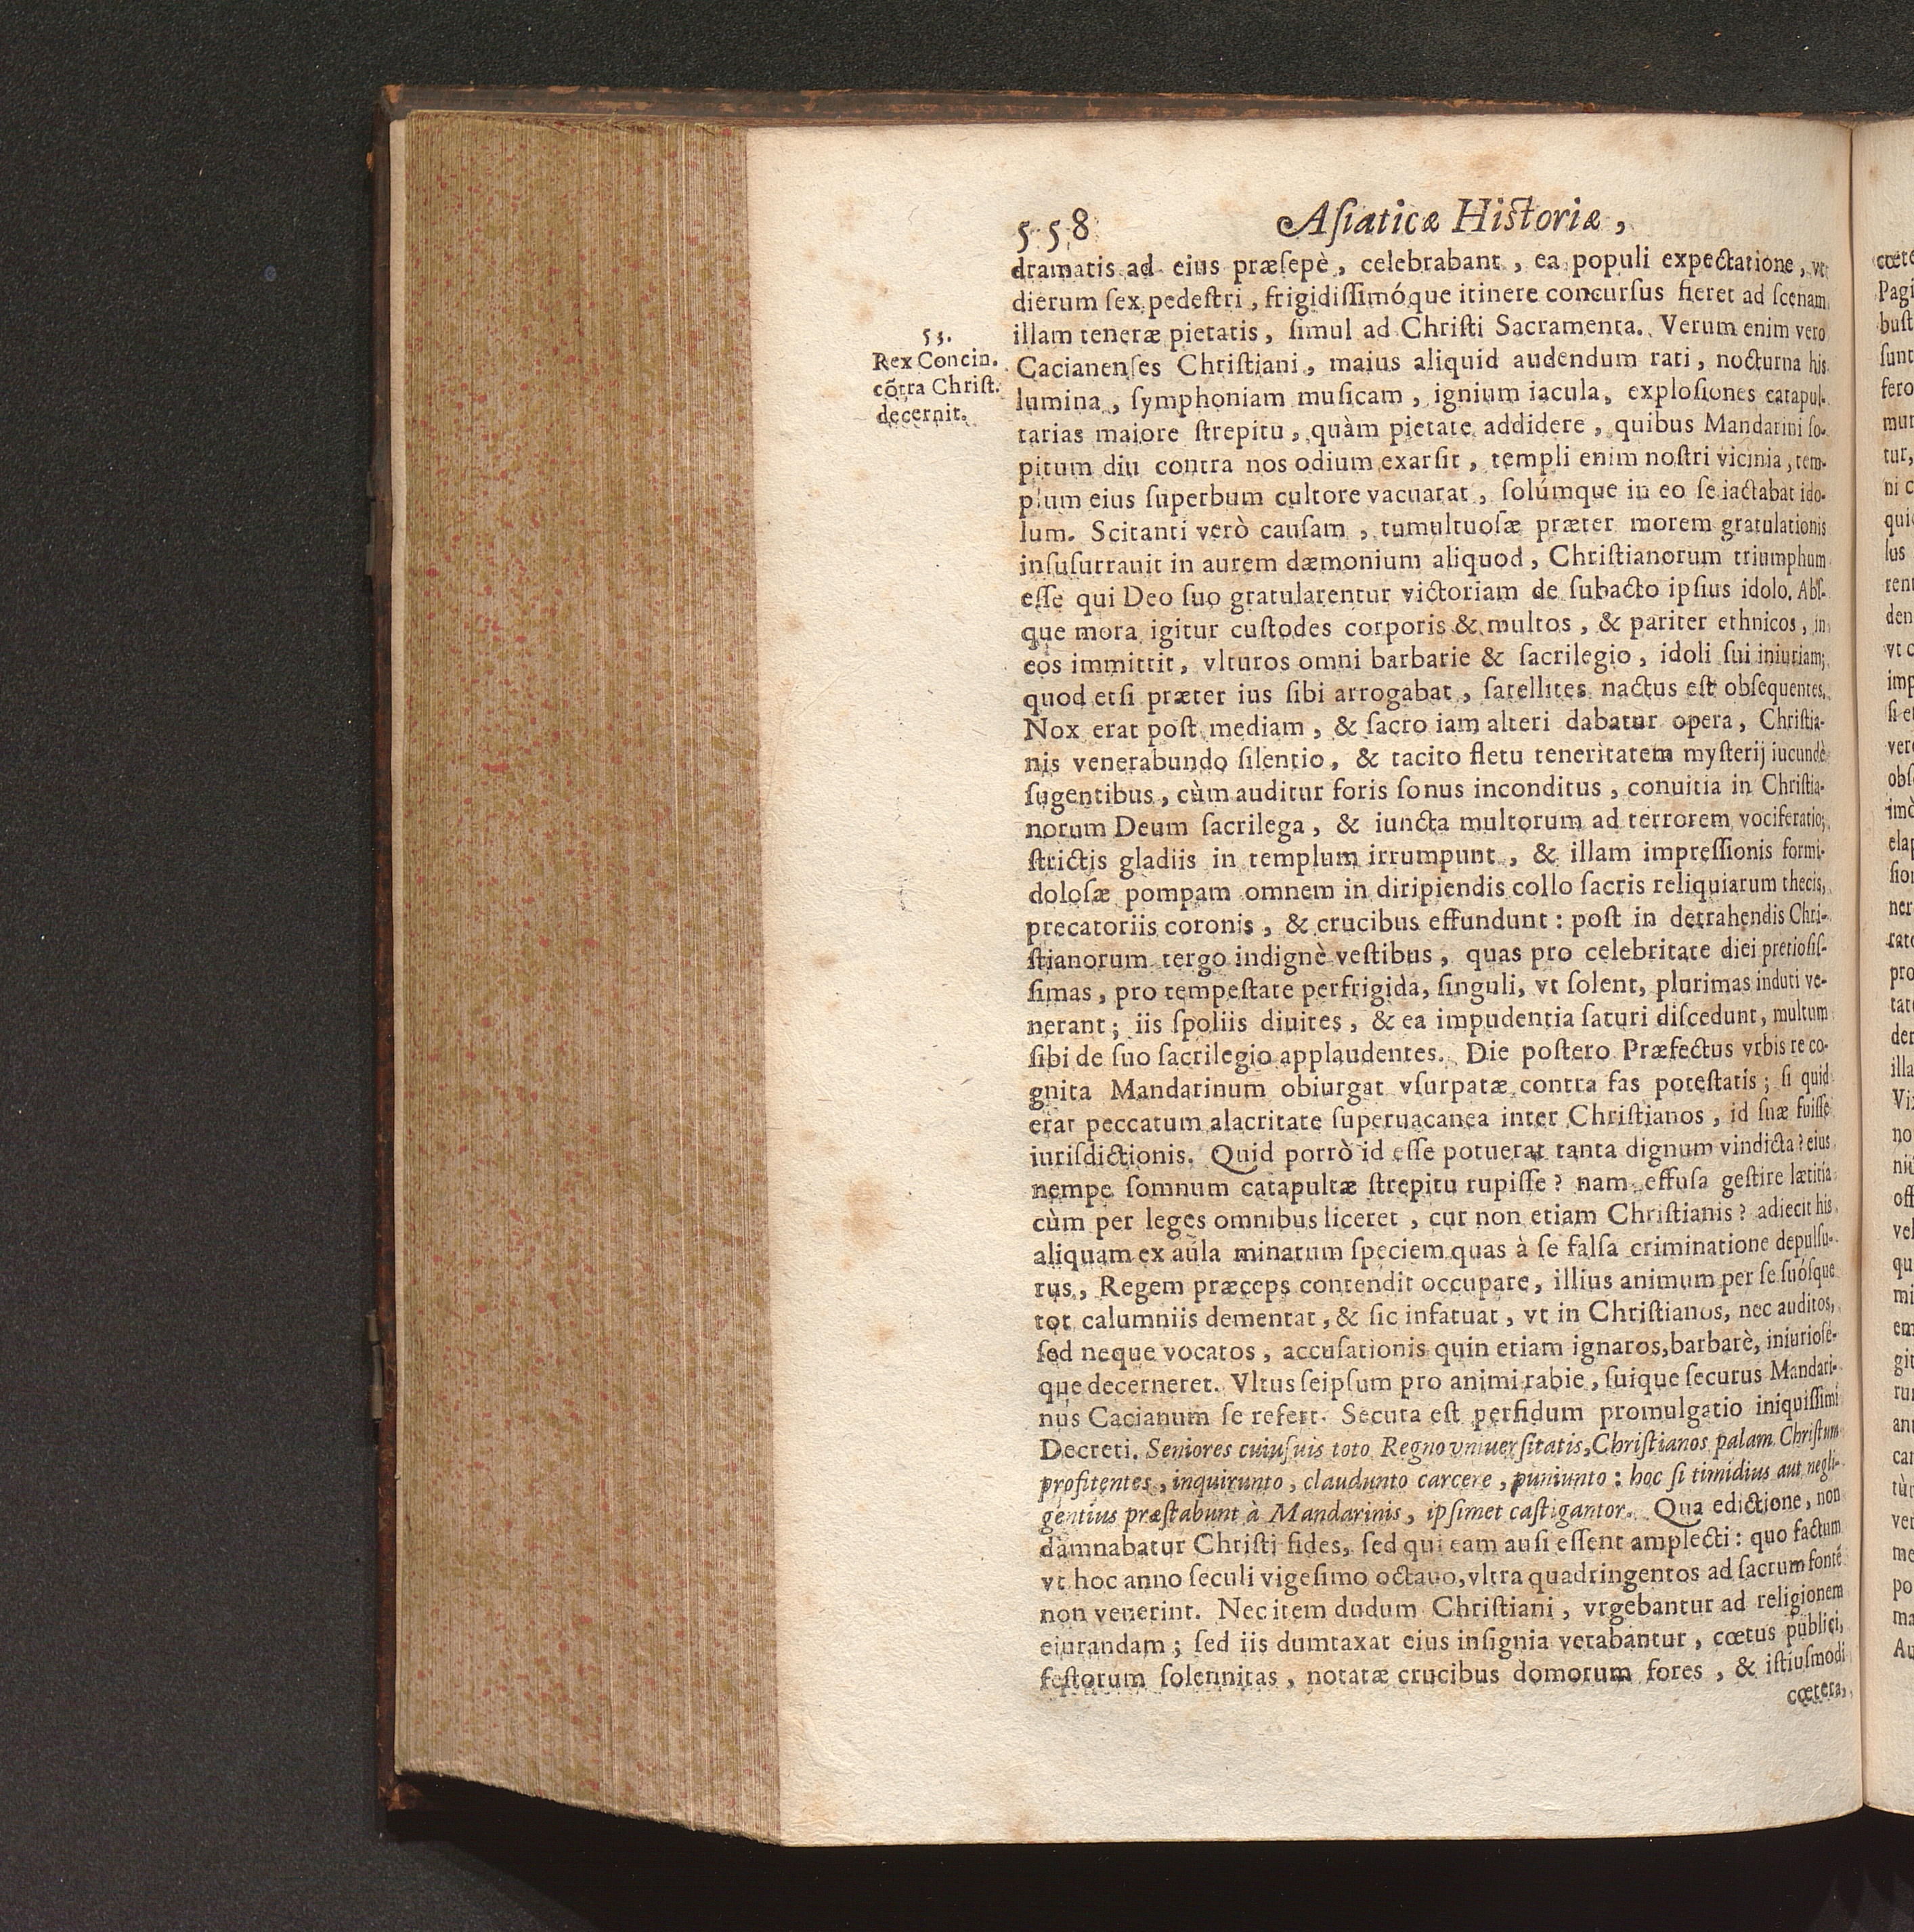 558 Asiaticæ Historiæ,
dramatis ad eius præsepè, celebrabant, ea populi expectatione, vt
dierum sex pedestri, frigidissimóque itinere concursus fieret ad scenam
illam teneræ pietatis, simul ad Christi Sacramenta. Verum enim vero
53.
Rex Concin.
cõtra Christ.
decernit.
Cacianenses Christiani, maius aliquid audendum rati, nocturna his
lumina, symphoniam musicam, ignium iacula, explosiones catapul-
tarias maiore strepitu, quàm pietate addidere, quibus Mandarini so-
pitum diu contra nos odium exarsit, templi enim nostri vicinia, tem-
plum eius superbum cultore vacuarat, solúmque in eo se iactabat ido-
lum. Scitanti verò causam, tumultuosæ præter morem gratulationis
insusurrauit in aurem dæmonium aliquod, Christianorum triumphum
esse qui Deo suo gratularentur victoriam de subacto ipsius idolo. Abs-
que mora igitur custodes corporis & multos, & pariter ethnicos, in
eos immittit, vlturos omni barbarie & sacrilegio, idoli sui iniuriam;
quod etsi præter ius sibi arrogabat, satellites nactus est obsequentes.
Nox erat post mediam, & sacro iam alteri dabatur opera, Christia-
nis venerabundo silentio, & tacito fletu teneritatem mysterij iucundè
sugentibus, cùm auditur foris sonus inconditus, conuitia in Christia-
norum Deum sacrilega, & iuncta multorum ad terrorem vociferatio;
strictis gladiis in templum irrumpunt, & illam impressionis formi-
dolosæ pompam omnem in diripiendis collo sacris reliquiarum thecis,
precatoriis coronis, & crucibus effundunt: post in detrahendis Chri-
stianorum tergo indignè vestibus, quas pro celebritate diei pretiosis-
simas, pro tempestate perfrigida, singuli, vt solent, plurimas induti ve-
nerant; iis spoliis diuites, & ea impudentia saturi discedunt, multum
sibi de suo sacrilegio applaudentes. Die postero Præfectus vrbis re co-
gnita Mandarinum obiurgat vsurpatæ contra fas potestatis; si quid
erat peccatum alacritate superuacanea inter Christianos, id suæ fuisse
iurisdictionis. Quid porrò id esse potuerat tanta dignum vindicta? eius
nempe somnum catapultæ strepitu rupisse? nam effusa gestire lætitia
cùm per leges omnibus liceret, cur non etiam Christianis? adiecit his
aliquam ex aula minarum speciem quas à se falsa criminatione depulsu-
rus, Regem præceps contendit occupare, illius animum per se suósque
tot calumniis dementat, & sic infatuat, vt in Christianos, nec auditos,
sed neque vocatos, accusationis quin etiam ignaros, barbarè, iniuriosé-
que decerneret. Vltus seipsum pro animi rabie, suique securus Mandari-
nus Cacianum se refert. Secuta est perfidum promulgatio iniquissimi
Decreti. Seniores cuiusuis toto Regno vniuersitatis, Christianos palam Christum
profitentes, inquirunto, claudunto carcere, puniunto: hoc si timidius aut negli-
gentius præstabunt à Mandarinis, ipsimet castigantor. Qua edictione, non
damnabatur Christi fides, sed qui eam ausi essent amplecti: quo factum
vt hoc anno seculi vigesimo octauo, vltra quadringentos ad sacrum fonté
non venerint. Nec item dudum Christiani, vrgebantur ad religionem
eiurandam; sed iis dumtaxat eius insignia vetabantur, cœtus publici,
festorum solennitas, notatæ crucibus domorum fores, & istiusmodi
cœtera,